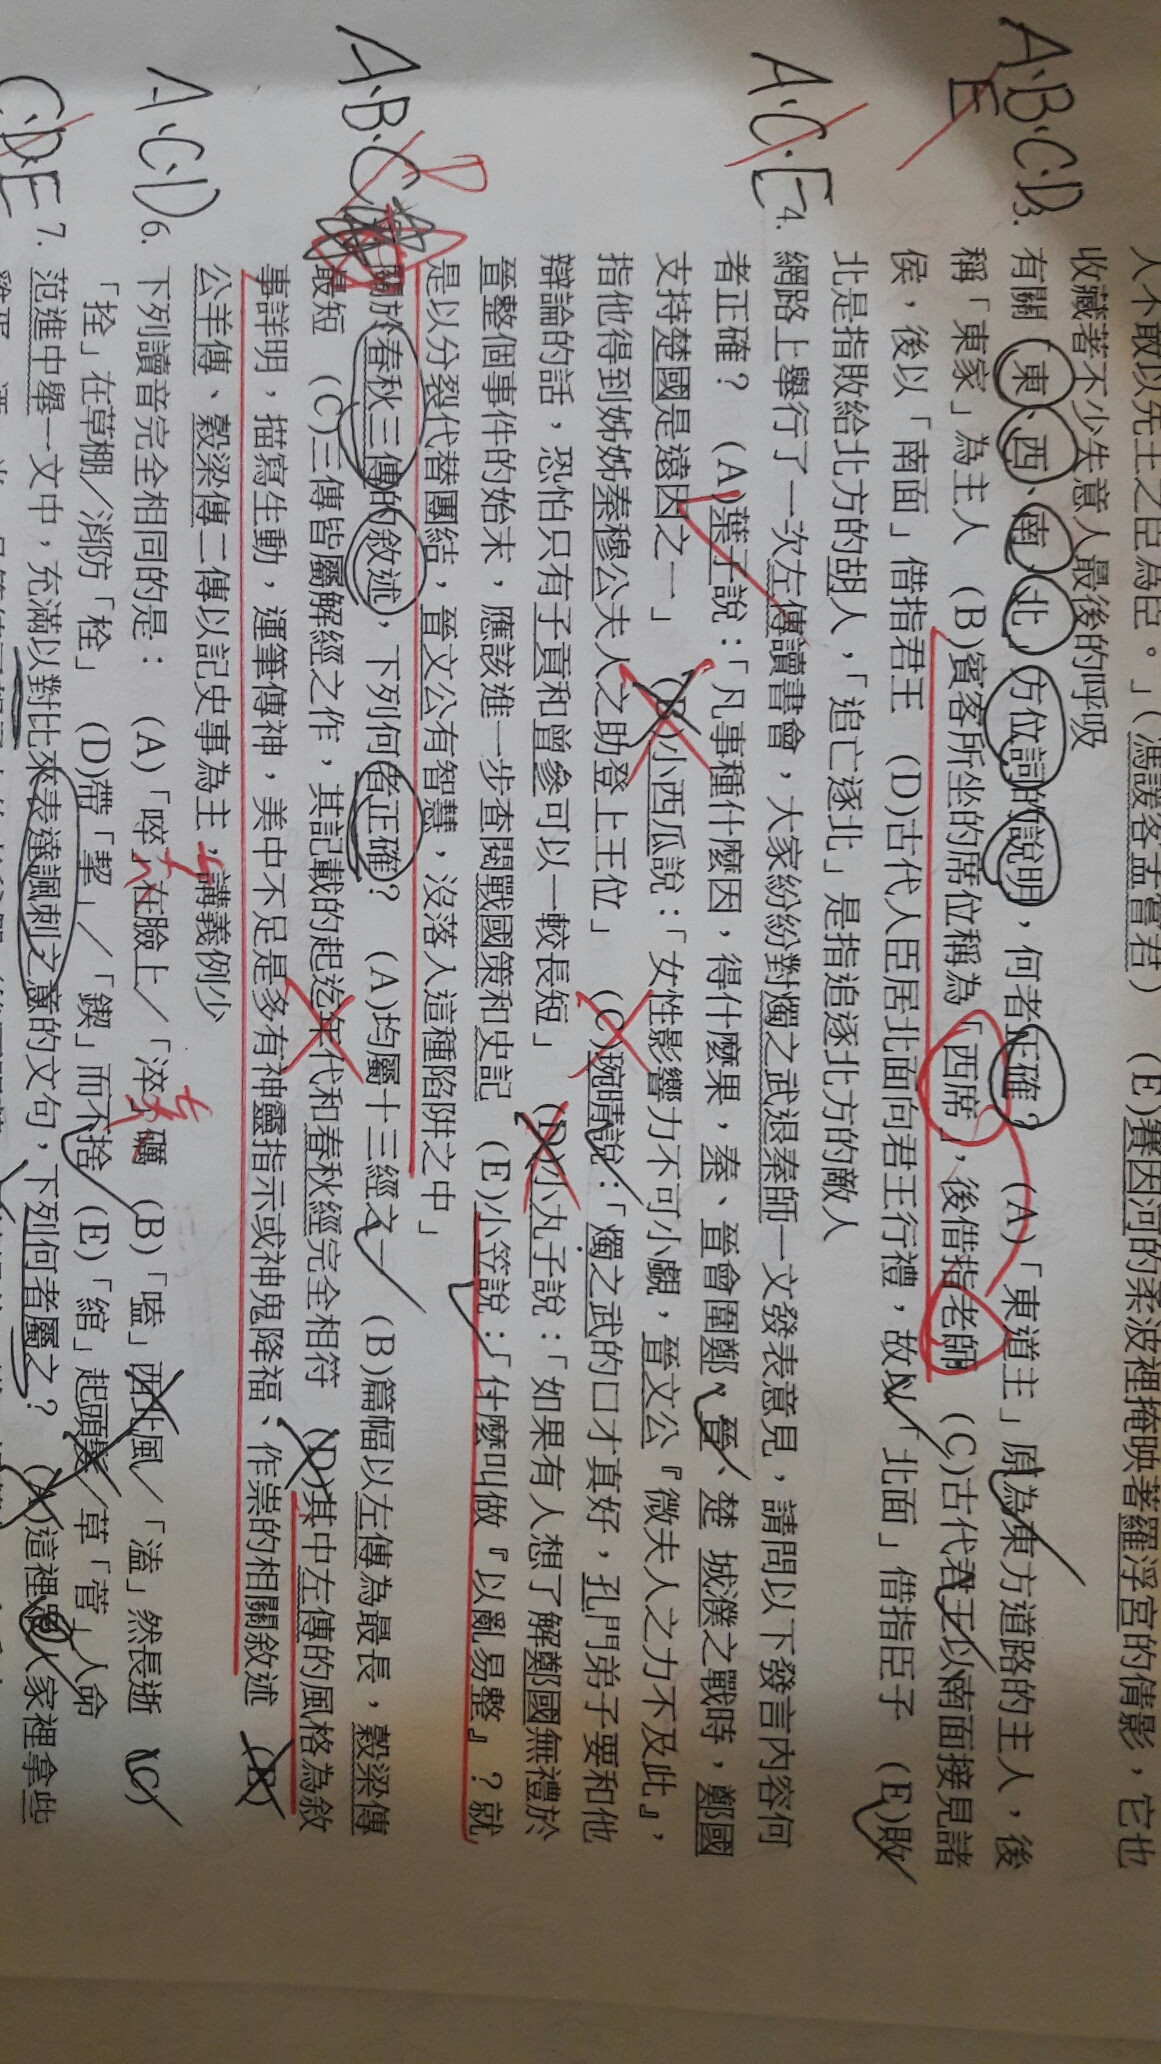 人不敢以先王之臣為臣。」（馮諼客孟嘗君） (E)賽因河的柔波裡掩映著羅浮宮的倩影，它也
收藏著不少失意人最後的呼吸
A、B、C、D
E
3. 有關「東、西、南、北」方位詞的說明，何者正確？ (A)「東道主」原為東方道路的主人，後
稱「東家」為主人 (B)賓客所坐的席位稱為「西席」，後借指老師 (C)古代君王以南面接見諸
侯，後以「南面」借指君王 (D)古代人臣居北面向君王行禮，故以「北面」借指臣子 (E)敗
北是指敗給北方的胡人，「追亡逐北」是指追逐北方的敵人
A、C、E
4. 網路上舉行了一次左傳讀書會，大家紛紛對燭之武退秦師一文發表意見，請問以下發言內容何
者正確？ (A)葉子說：「凡事種什麼因，得什麼果，秦、晉會圍鄭，晉、楚 城濮之戰時，鄭國
支持楚國是遠因之一」 (B)小西瓜說：「女性影響力不可小覷，晉文公『微夫人之力不及此』，
指他得到姊姊秦穆公夫人之助登上王位」 (C)琬晴說：「燭之武的口才真好，孔門弟子要和他
辯論的話，恐怕只有子貢和曾參可以一較長短」 (D)小丸子說：「如果有人想了解鄭國無禮於
晉整個事件的始末，應該進一步查閱戰國策和史記 (E)小笠說：「什麼叫做『以亂易整』？就
是以分裂代替團結，晉文公有智慧，沒落入這種陷阱之中」
A、B、C
D
關於春秋三傳的敘述，下列何者正確？ (A)均屬十三經之一 (B)篇幅以左傳為最長，穀梁傳
最短 (C)三傳皆屬解經之作，其記載的起迄年代和春秋經完全相符 (D)其中左傳的風格為敘
事詳明，描寫生動，運筆傳神，美中不足是多有神靈指示或神鬼降福、作祟的相關敘述 (E)
公羊傳、穀梁傳二傳以記史事為主，講義例少
A、C、D
6. 下列讀音完全相同的是： (A)「啐」在臉上／「淬」礪 (B)「嗑」西北風／「溘」然長逝 (C)
「拴」在草棚／消防「栓」 (D)帶「挈」／「鍥」而不捨 (E)「綰」起頭髮／草「菅」人命
C、D、E
7. 范進中舉一文中，充滿以對比來表達諷刺之意的文句，下列何者屬之？ (A)這裡眾人家裡拿些